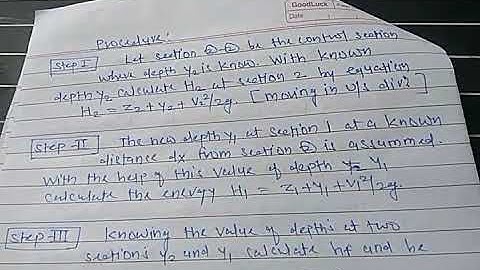 GoodLuck
Date
Procedure:
Step I Let section ②-② be the control section
where depth Y2 is know. With known
depth Y2 calculate H2 at section 2 by equation
H2 = Z2 + Y2 + V2²/2g. [moving in u/s dirn]
Step-II The new depth Y1 at section 1 at a known
distance dx from section ② is assummed.
With the help of this value of depth Y2 Y1
calculate the energy H1 = Z1 + Y1 + V1²/2g.
Step III Knowing the value of depths at two
sections Y2 and Y1 calculate hf and he